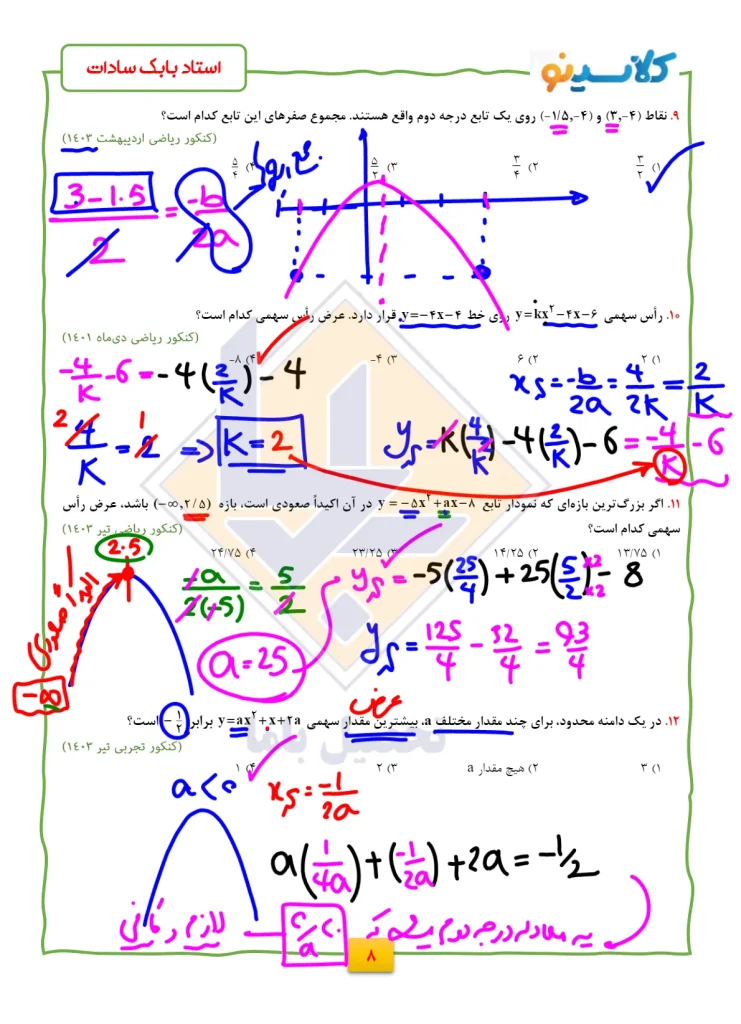 استاد بابک سادات
کلاسینو
۹. نقاط (۳,-۴) و (-۱/۵,-۴) روی یک تابع درجه دوم واقع هستند. مجموع صفرهای این تابع کدام است؟
(کنکور ریاضی اردیبهشت ۱۴۰۳)
۱) ۳/۲ ۲) ۳/۴ ۳) ۵/۲ ۴) ۵/۴
3-1.5/2 = -b/2a
۱۰. رأس سهمی y=kx²-۴x-۶ روی خط y=-۴x-۴ قرار دارد. عرض رأس سهمی کدام است؟
(کنکور ریاضی دی‌ماه ۱۴۰۱)
۱) ۲ ۲) ۶ ۳) -۴ ۴) -۸
-4/K -6 = -4(2/K) - 4
xs = -b/2a = 4/2K = 2/K
4/K = 2 => K = 2
ys = K(4/K²) - 4(2/K) - 6 = -4/K - 6
۱۱. اگر بزرگ‌ترین بازه‌ای که نمودار تابع y = -۵x²+ax-۸ در آن اکیداً صعودی است، بازه (-∞,۲/۵) باشد، عرض رأس
سهمی کدام است؟
(کنکور ریاضی تیر ۱۴۰۳)
۱) ۱۳/۷۵ ۲) ۱۴/۲۵ ۳) ۲۳/۲۵ ۴) ۲۴/۷۵
2.5
اکیداً صعودی
-∞
-a/2(-5) = 5/2
a = 25
ys = -5(25/4) + 25(5/2) - 8
×2
×2
ys = 125/4 - 32/4 = 93/4
عرض
۱۲. در یک دامنه محدود، برای چند مقدار مختلف a، بیشترین مقدار سهمی y=ax²+x+۲a برابر -۱/۲ است؟
(کنکور تجربی تیر ۱۴۰۳)
۱) ۳ ۲) هیچ مقدار a ۳) ۲ ۴) ۱
a < 0
xs = -1/2a
a(1/4a) + (-1/2a) + 2a = -1/2
یه معادله درجه دوم که
c/a < 0
لازم و کافی
تحصیل باما
۸